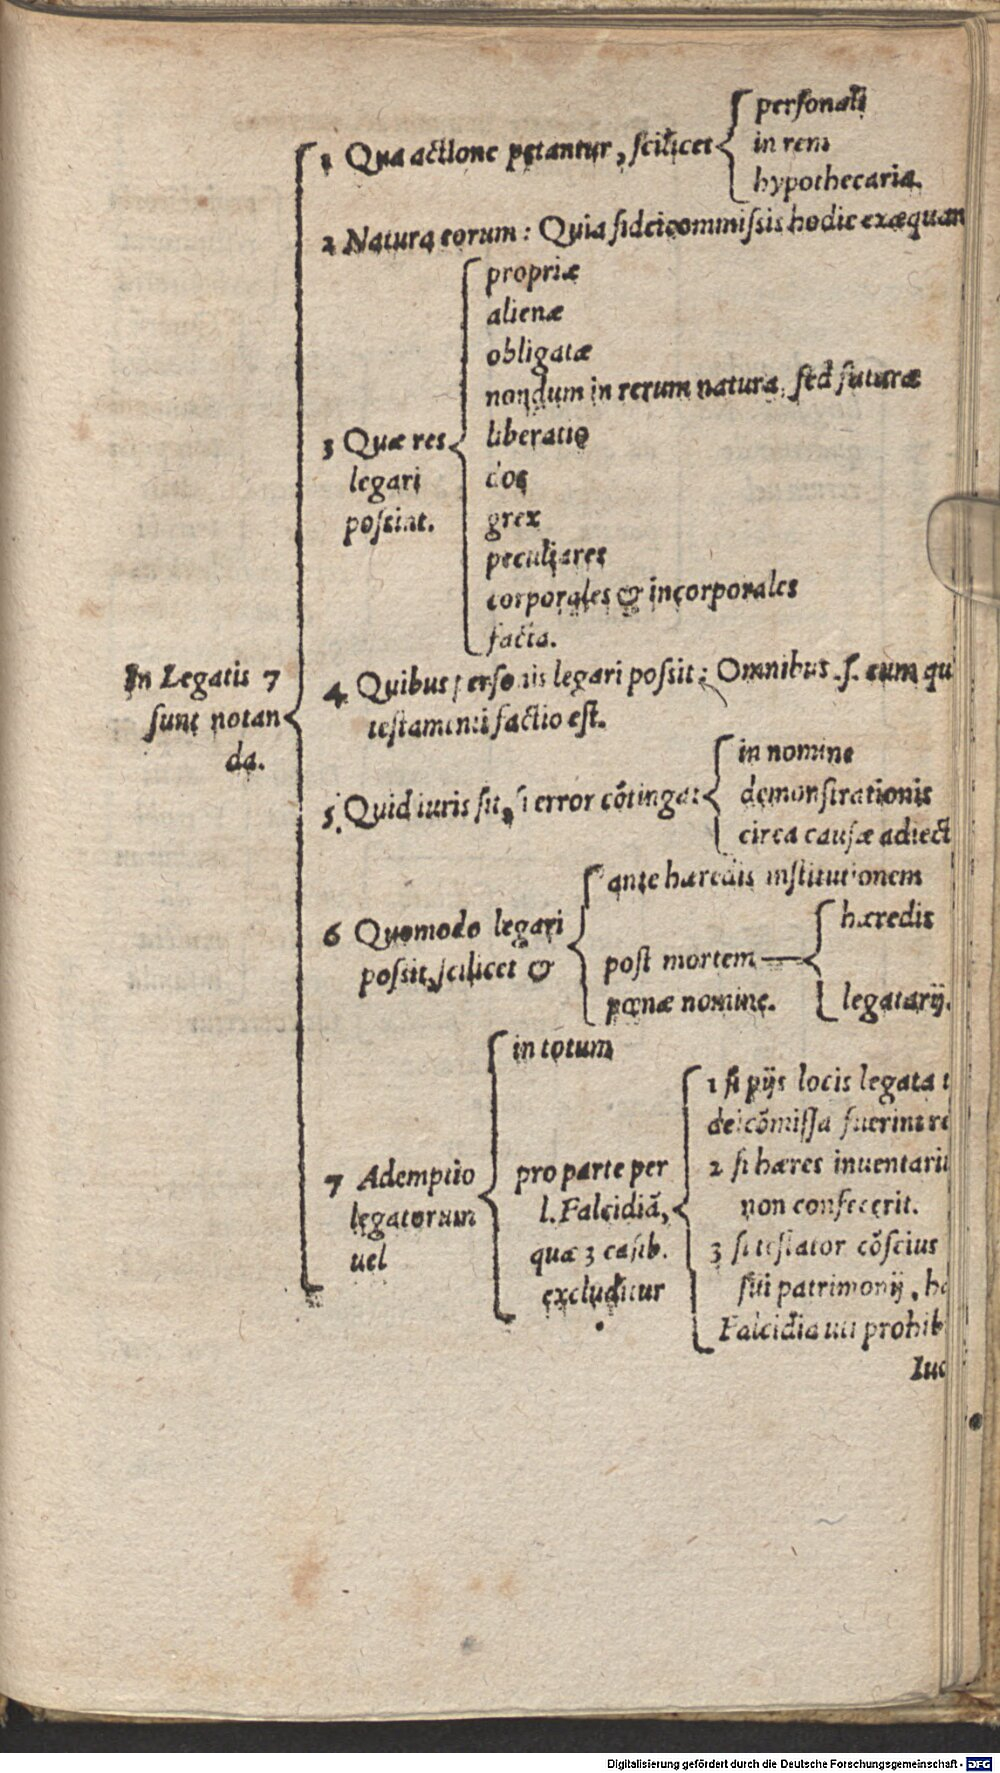 1 Qua actione petantur, scilicet
personali
in rem
hypothecaria.
2 Natura eorum: Quia fideicommissis hodie exæquan
3 Quæ res
legari
possint.
propriæ
alienæ
obligatæ
nondum in rerum natura, sed futuræ
liberatio
dos
grex
peculiares
corporales & incorporales
facta.
In Legatis 7
sunt notan
da.
4 Quibus personis legari possit: Omnibus .s. cum qu
testamenti factio est.
5 Quid iuris sit, si error cõtingat
in nomine
demonstrationis
circa causæ adiect
6 Quomodo legari
possit, scilicet &
ante hæredis institutionem
post mortem
hæredis
legatarij.
pœnæ nomine.
7 Ademptio
legatorum
uel
in totum
pro parte per
l. Falcidiã,
quæ 3 casib.
excluditur
1 si pijs locis legata t
deicõmissa fuerint re
2 si hæres inuentariũ
non confecerit.
3 si testator cõscius
sui patrimonij, hæ
Falcidia uti prohib
Iuc
Digitalisierung gefördert durch die Deutsche Forschungsgemeinschaft - DFG